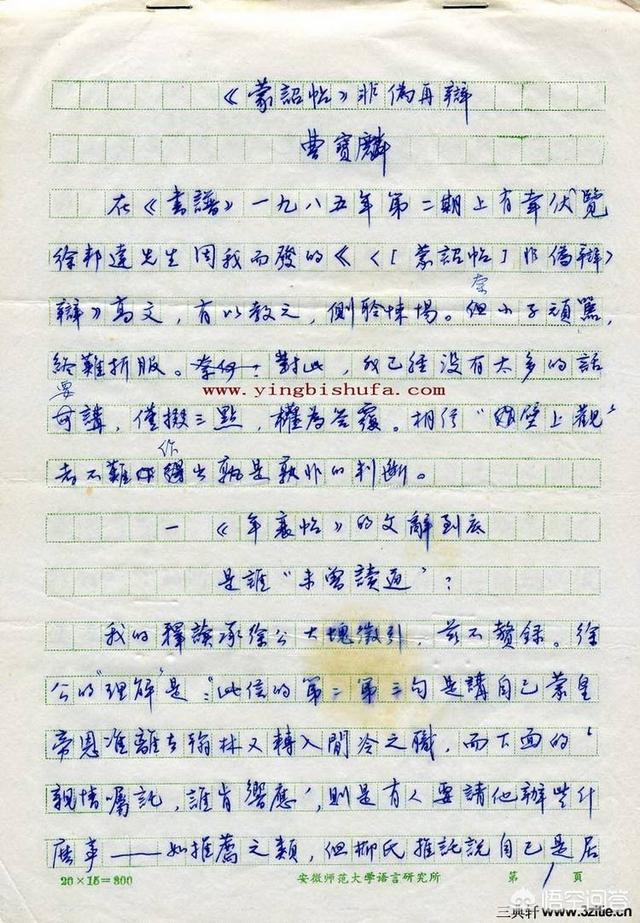 《蒙詔帖》非偽再辯
曹寶麟
在《書譜》一九八五年第二期上有幸伏覽
徐邦達先生因我而發的《〈[蒙詔帖]非偽辯〉
辯》高文，有以教之，側聆悚惕。但小子頑駑，
終難折服。對此，我已經沒有太多的話
要可講，僅掇三點，權為答覆。相信“壁上觀”
者不難作出孰是孰非的判斷。
一 《年衰帖》的文辭到底
是誰“未曾讀通”？
我的釋讀承徐公大塊徵引，茲不贅錄。徐
公的“理解”是：“此信的第二第三句是講自己蒙皇
帝恩准離去翰林又轉入閒冷之職，而下面的‘
親情囑託，誰肯響應’，則是有人要請他辦些什
麼事——如推薦之類，但柳氏推託說自己是居
20×15=300 安徽师范大学语言研究所 第 1 頁
www.yingbishufa.com
悟空问答
三典轩 www.3zitie.cn